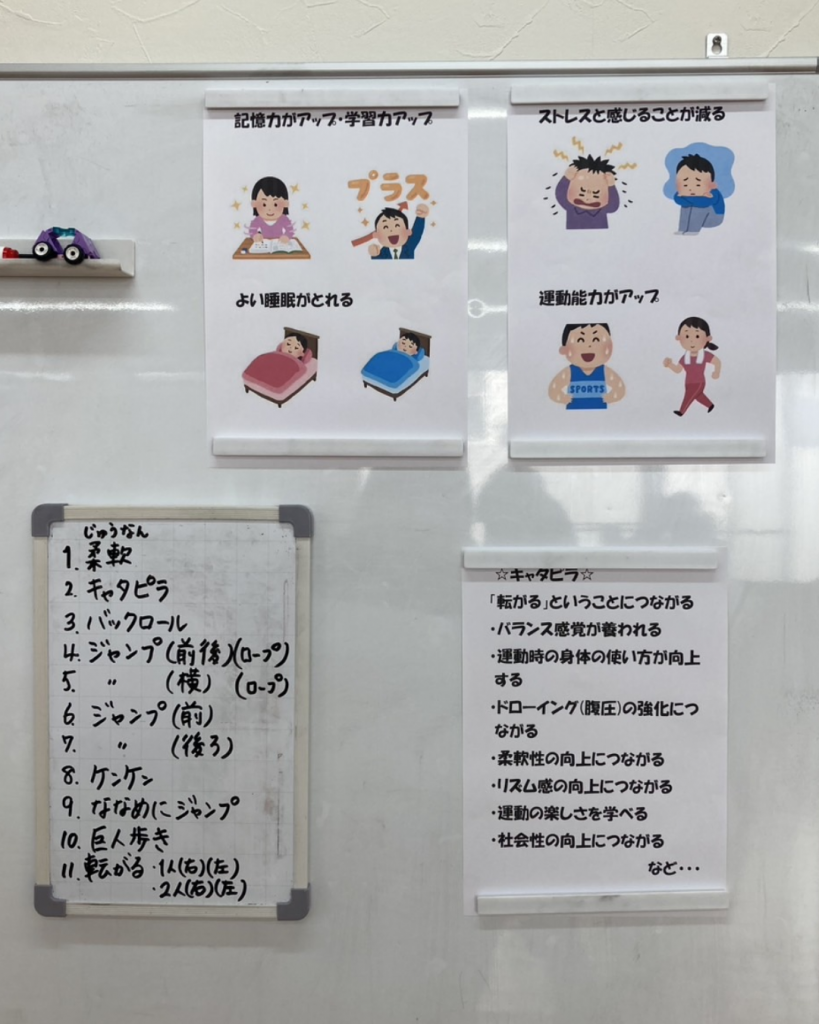 記憶力がアップ・学習力アップ
プラス
よい睡眠がとれる
ストレスと感じることが減る
運動能力がアップ
SPORTS
じゅうなん
1. 柔軟
2. キャタピラ
3. バックロール
4. ジャンプ(前後)(ロープ)
5. 〃 (横) (ロープ)
6. ジャンプ(前)
7. 〃 (後ろ)
8. ケンケン
9. ななめにジャンプ
10. 巨人歩き
11. 転がる ・1人(右)(左)
・2人(右)(左)
☆キャタピラ☆
「転がる」ということにつながる
・バランス感覚が養われる
・運動時の身体の使い方が向上
する
・ドローイング(腹圧)の強化につ
ながる
・柔軟性の向上につながる
・リズム感の向上につながる
・運動の楽しさを学べる
・社会性の向上につながる
など・・・